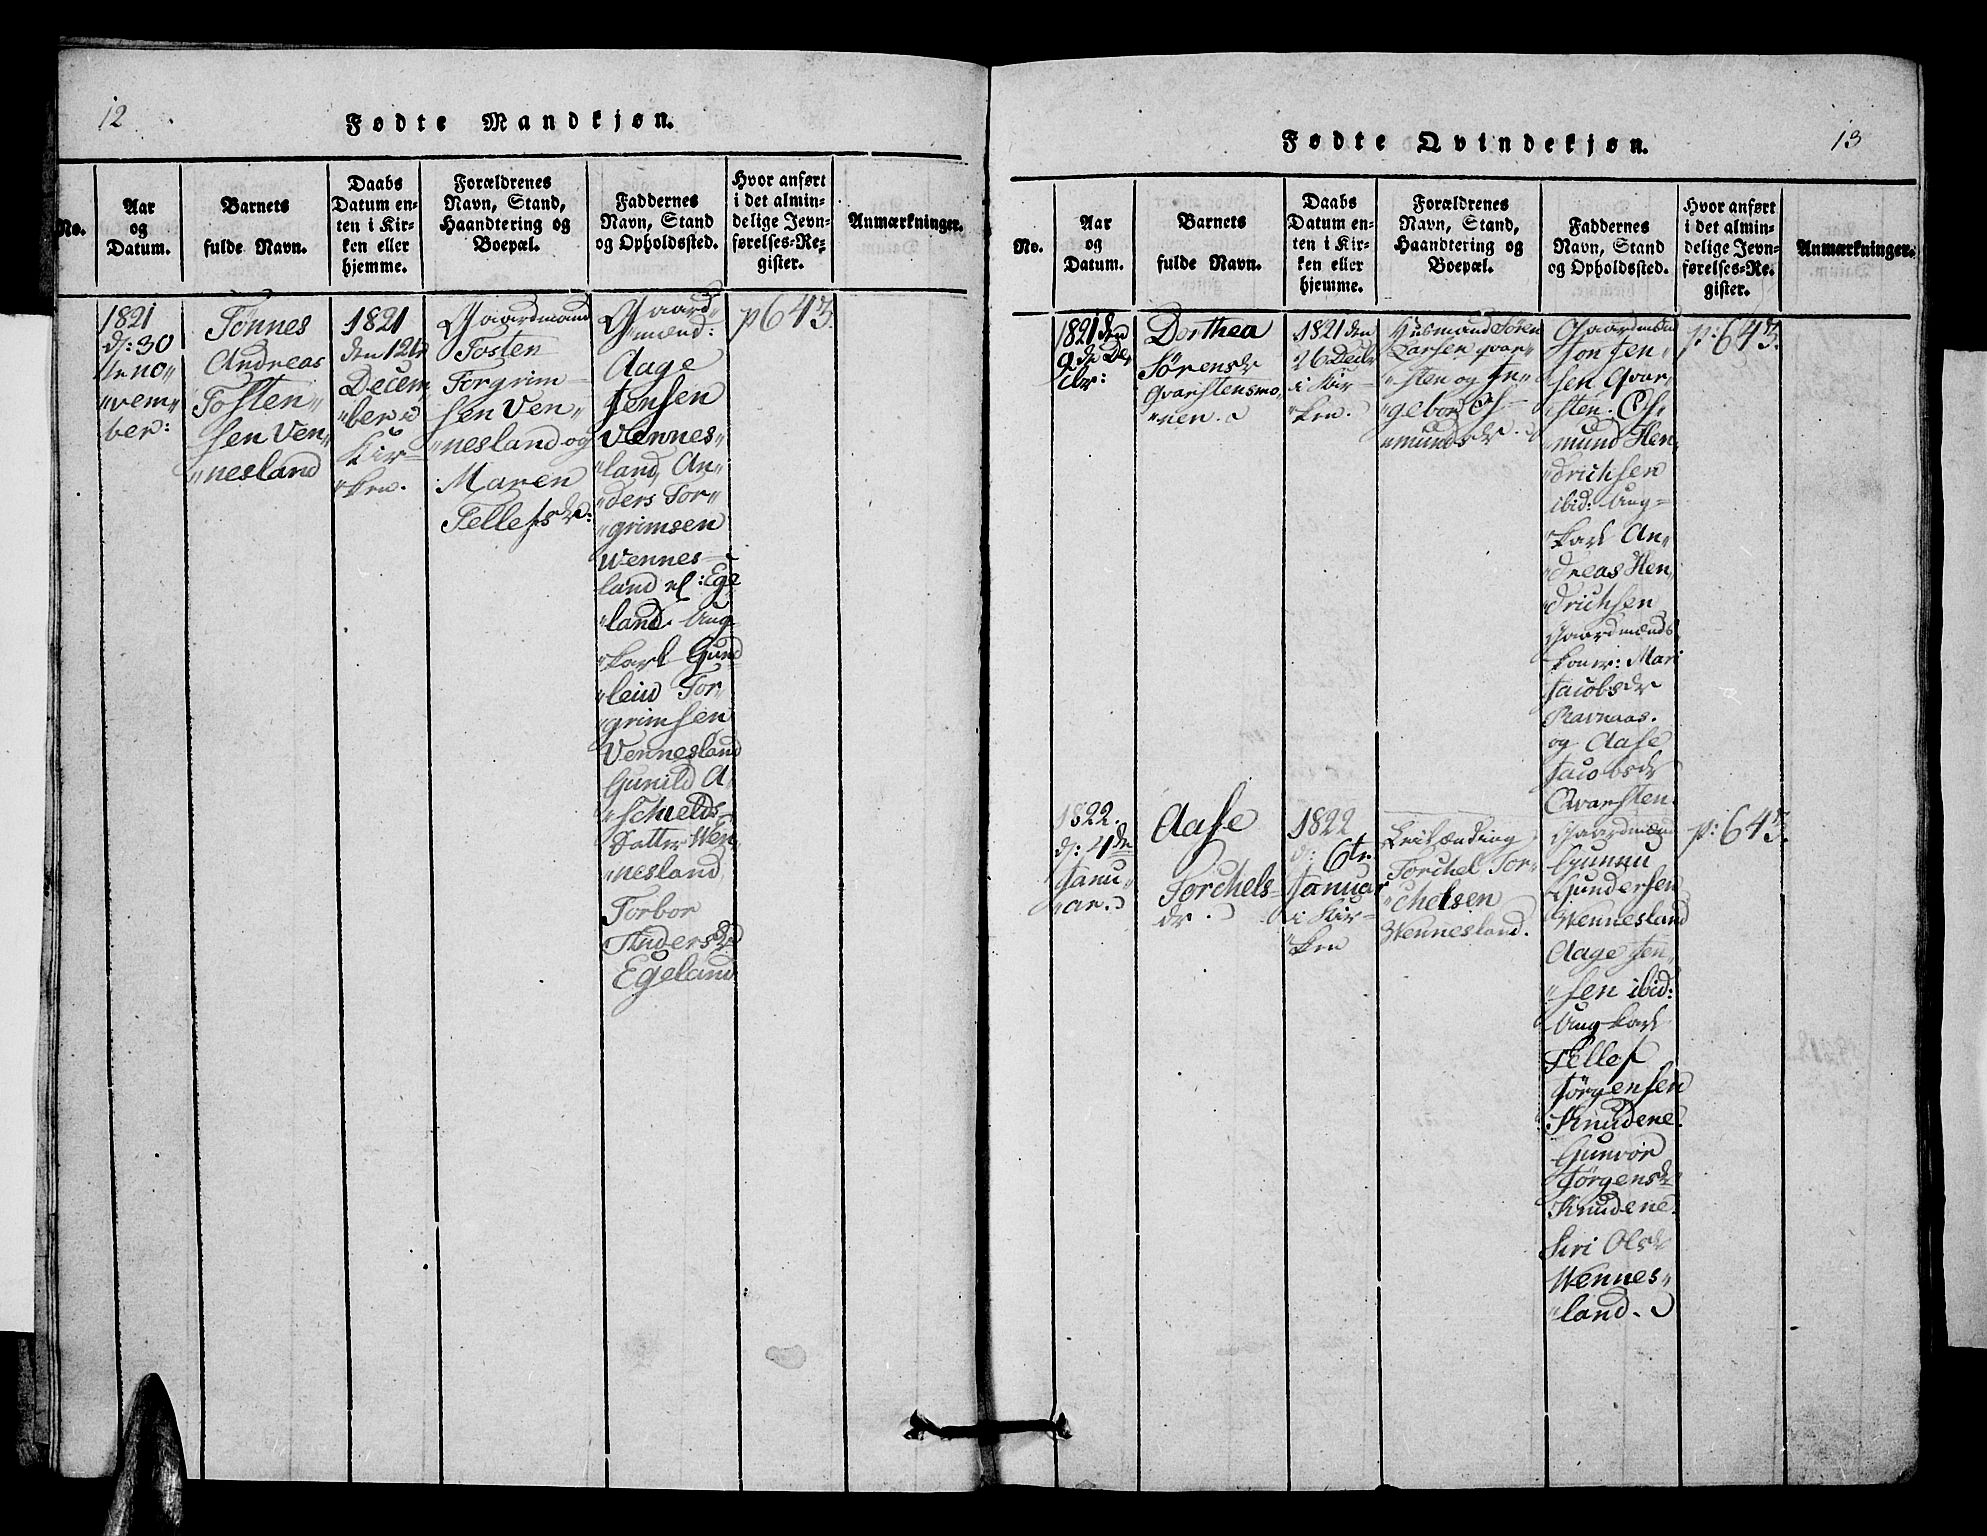 12
Fødte Mandkjøn.
No.
Aar
og
Datum.
Barnets
fulde Navn.
Daabs
Datum en-
ten i Kir-
ken eller
hjemme.
Forældrenes
Navn, Stand,
Haandtering og
Boepæl.
Faddernes
Navn, Stand
og Opholdssted.
Hvor anført
i det almin-
delige Jevn-
førelses-Re-
gister.
Anmærkninger.
1821
d: 30
te No„
„vem„
ber:
Tønnes
Andreas
Tosten„
sen Ven„
„nesland
1821
den 12te
Decem„
„ber i
Kir„
„ken.
Gaardmand
Tosten
Torgrim„
sen Ven„
„nesland og
Maren
Tellefsdr:
Gaard„
„mænd:
Aage
Jensen
Vennes„
„land, An„
„ders Tor„
„grimsen
Vennes„
land el: Ege
„land. Ung„
„karl Gund
„leiv Tor„
„grimsen
Vennesland
Gunild A„
„schields
Datter Wen„
„nesland
Torbor
Andersdr
Egeland
p 643.
13
Fødte Qvindekjøn.
No.
Aar
og
Datum.
Barnets
fulde Navn.
Daabs
Datum en-
ten i Kir-
ken eller
hjemme.
Forældrenes
Navn, Stand,
Haandtering og
Boepæl.
Faddernes
Navn, Stand
og Opholdssted.
Hvor anført
i det almin-
delige Jevn-
førelses-Re-
gister.
Anmærkninger.
1821 den
9de De„
cbr:
Dorthea
Sørensdr
Qvarstensmo„
„nen.
1821 den
26 Decbr
i Kir„
„ken.
Husmand Søren
Larsen Qvar„
„sten og In„
„gebor As„
„mundsdr.
Gaardmænd
Jon Jen„
„sen Qvar„
„sten. As„
„mund Hen„
„drichsen
ibid: Ung„
„karl An„
„dreas Hen„
„drichsen
Gaardmænds
koner: Mari
Jacobsdr
Ravnaas.
og Aase
Jacobsdr
Qvarsten.
p: 643.
1822.
d: 4de
Janu„
„ar.
Aase
Torchels„
dr.
1822
d: 6te
Januar
i Kir„
„ken
Torchel Tor„
„chelsen
Wennesland.
Gaardmænd
Gunnu
Gundersen
Wennesland
Aage Jen„
„sen ibid:
Ungkarl
Tellef
Jørgensen
Knudene.
Gunvor
Jørgensdr
Knudene.
Siri Olsdr
Wennes„
„land.
p: 643.